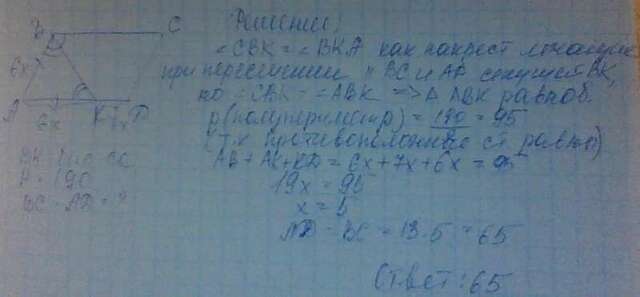 Решение)
∠CBK = ∠BKA как накрест лежащие
при пересечении || BC и AD секущей BK,
но ∠CBK = ∠ABK => Δ ABK равноб.
p(полупериметр) = 190 = 95
(т.к. противоположные ст. равны)
AB + AK + KD = 6x + 7x + 6x = 95
19x = 95
x = 5
AD = BC = 13·5 = 65
Ответ: 65
B
C
6x
A
6x
K
7x
D
P = 190
BC = AD = ?